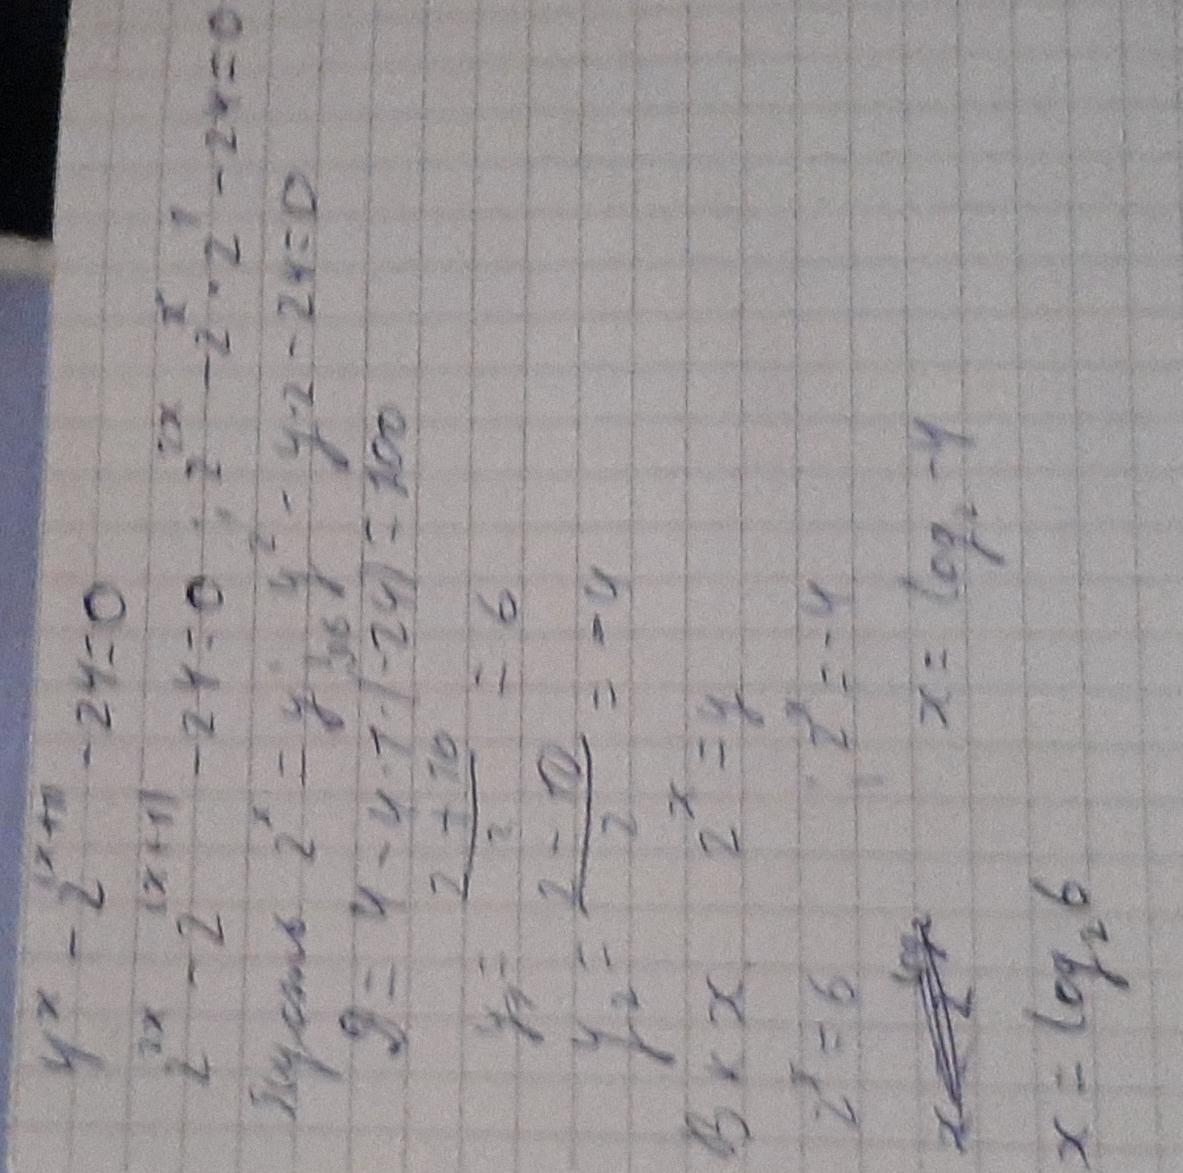 4^x - 2^(x+1) - 24=0
2^2x - 2^(x+1) - 24=0; 2^2x - 2^x · 2^1 - 24=0
Пусть 2^x = y y^2 - y·2 - 24=0
D = 4 - 4·1·(-24) = 100
y₁ = (2 + 10)/2 = 6
y₂ = (2 - 10)/2 = -4
В к х 2^x = y
2^x = 6 2^x = -4
x = log₂ -4
x = log₂ 6